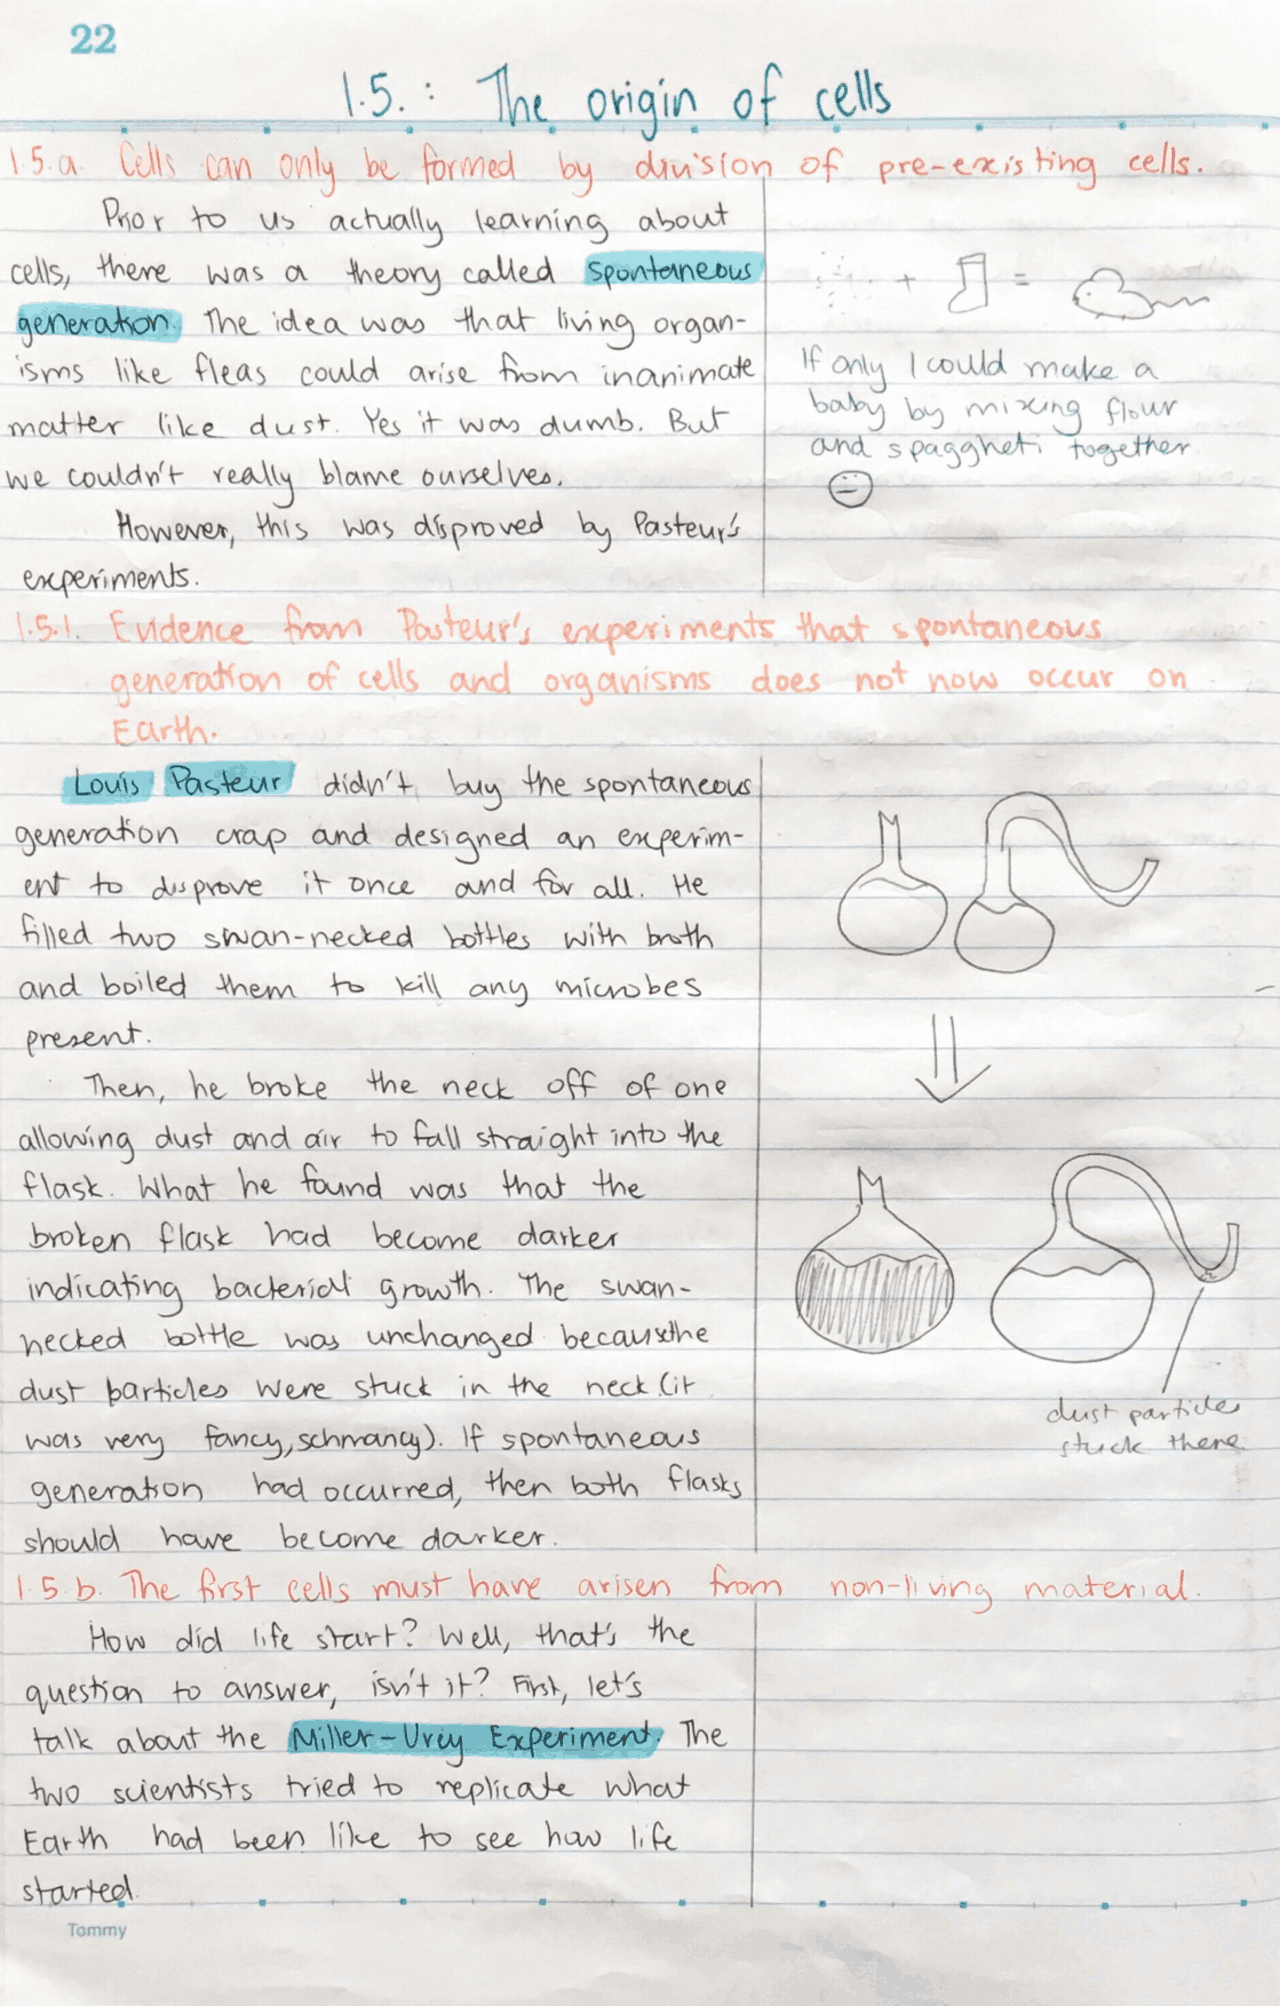 22
1.5.: The origin of cells
1.5.a. Cells can only be formed by division of pre-existing cells.
Prior to us actually learning about
cells, there was a theory called spontaneous
generation. The idea was that living organ-
isms like fleas could arise from inanimate
matter like dust. Yes it was dumb. But
we couldn't really blame ourselves.
However, this was disproved by Pasteur's
experiments.
+ =
If only I could make a
baby by mixing flour
and spaggheti together
1.5.1. Evidence from Pasteur's experiments that spontaneous
generation of cells and organisms does not now occur on
Earth.
Louis Pasteur didn't buy the spontaneous
generation crap and designed an experim-
ent to disprove it once and for all. He
filled two swan-necked bottles with broth
and boiled them to kill any microbes
present.
Then, he broke the neck off of one
allowing dust and air to fall straight into the
flask. What he found was that the
broken flask had become darker
indicating bacterial growth. The swan-
necked bottle was unchanged because the
dust particles were stuck in the neck (it
was very fancy, schmancy). If spontaneous
generation had occurred, then both flasks
should have become darker.
dust particles
stuck there.
1.5.b. The first cells must have arisen from non-living material.
How did life start? Well, that's the
question to answer, isn't it? First, let's
talk about the Miller-Urey Experiment. The
two scientists tried to replicate what
Earth had been like to see how life
started.
Tommy